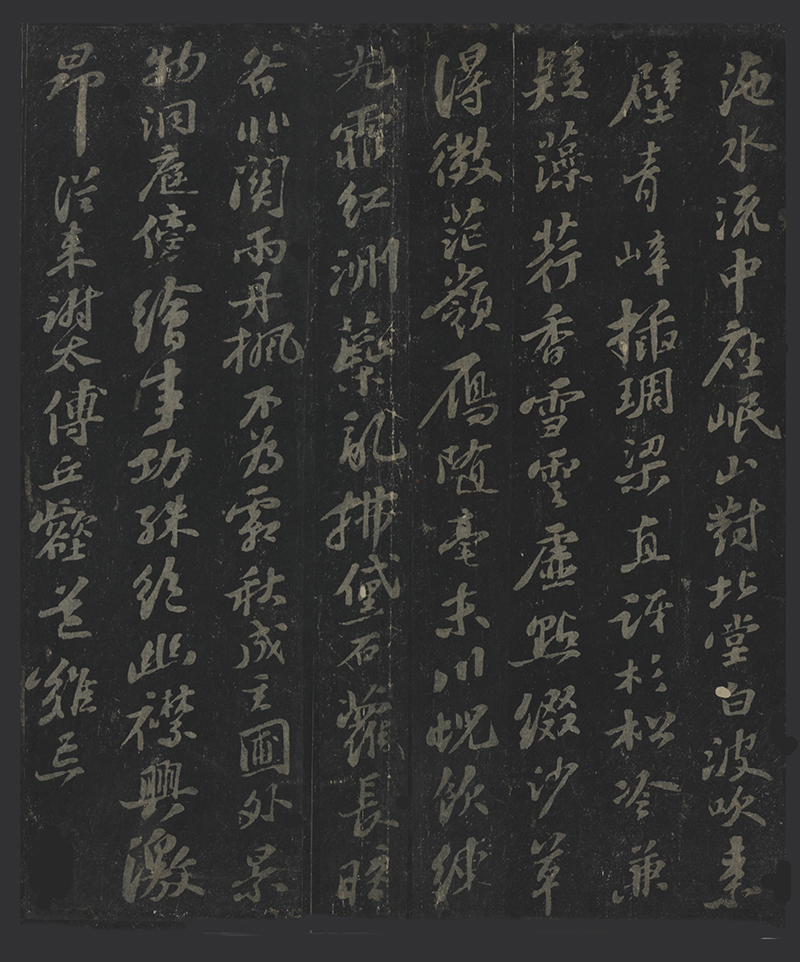 沲水流中座岷山對北堂白波吹素
壁青嶂插琱梁直訝杉松冷兼
疑藻荇香雪雲虛點綴沙草
得微茫嶺鴈隨毫末川蜺飲練
光霏紅洲蘂亂拂黛石蘿長暗
谷非關雨丹楓不為霜秋成玄圃外景
物洞庭傍繪事功殊絕幽襟興激
昂從來謝太傅丘壑道難忘